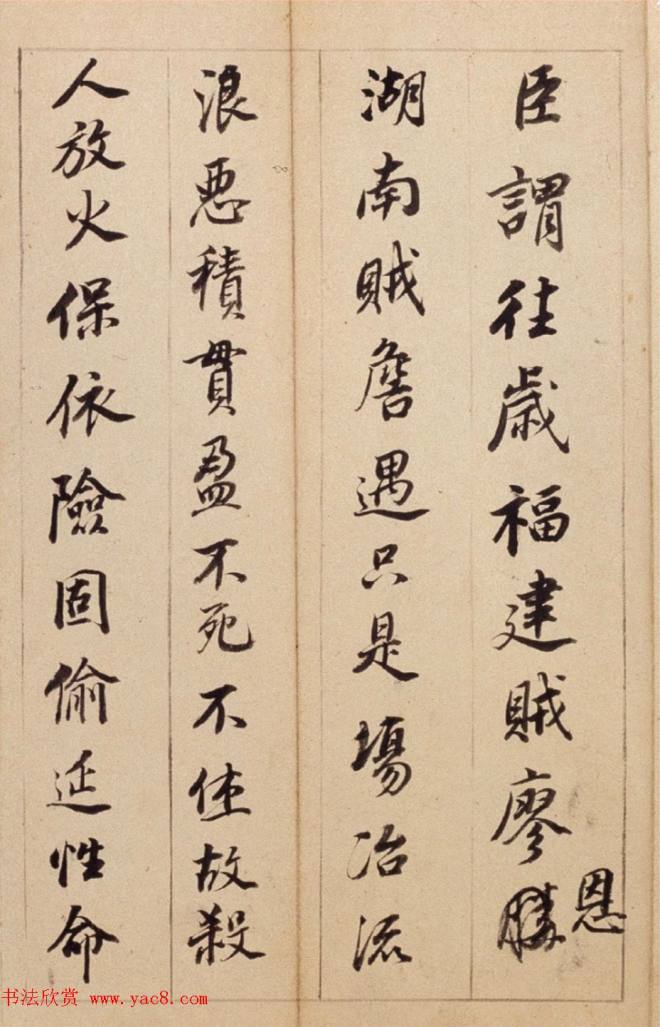 臣謂往歲福建賊廖勝
恩
湖南賊詹遇只是塲冶流
浪惡積貫盈不死不住故殺
人放火保依險固偷延性命
书法欣赏 www.yac8.com